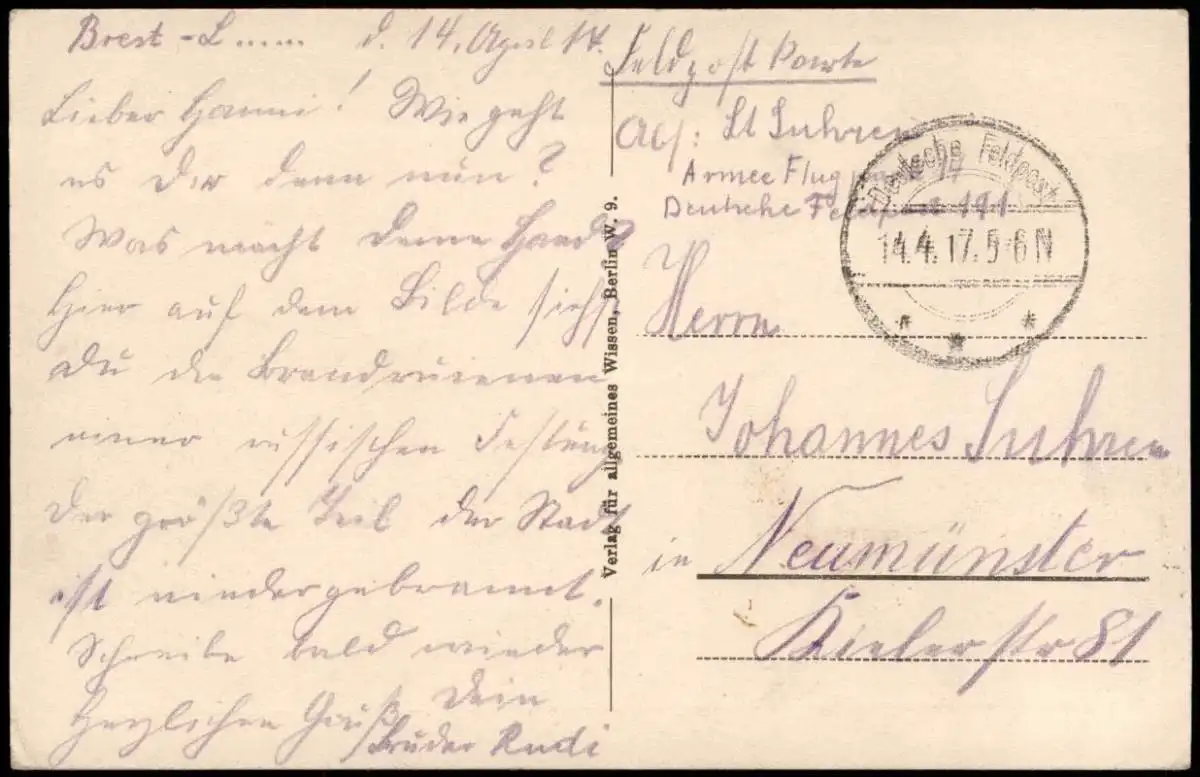 Brest-L...... d. 14. April 17.
Lieber Hanni! Wie geht
es Dir denn nun?
Was macht Deine Hand?
Hier auf dem Bilde siehst
Du die Brandruienen
einer russischen Festung
Der größte Teil der Stadt
ist niedergebrannt.
Schreibe bald wieder
Herzlichen Gruß Dein
Bruder Rudi
Verlag für allgemeines Wissen, Berlin W. 9.
Feldpost Karte
Abs: Lt Suhren
Armee Flug
Deutsche Feldpost 191
Deutsche Feldpost
14.4.17.5-6 N
* * *
Herrn
Johannes Suhren
in Neumünster
Kielerstr 81